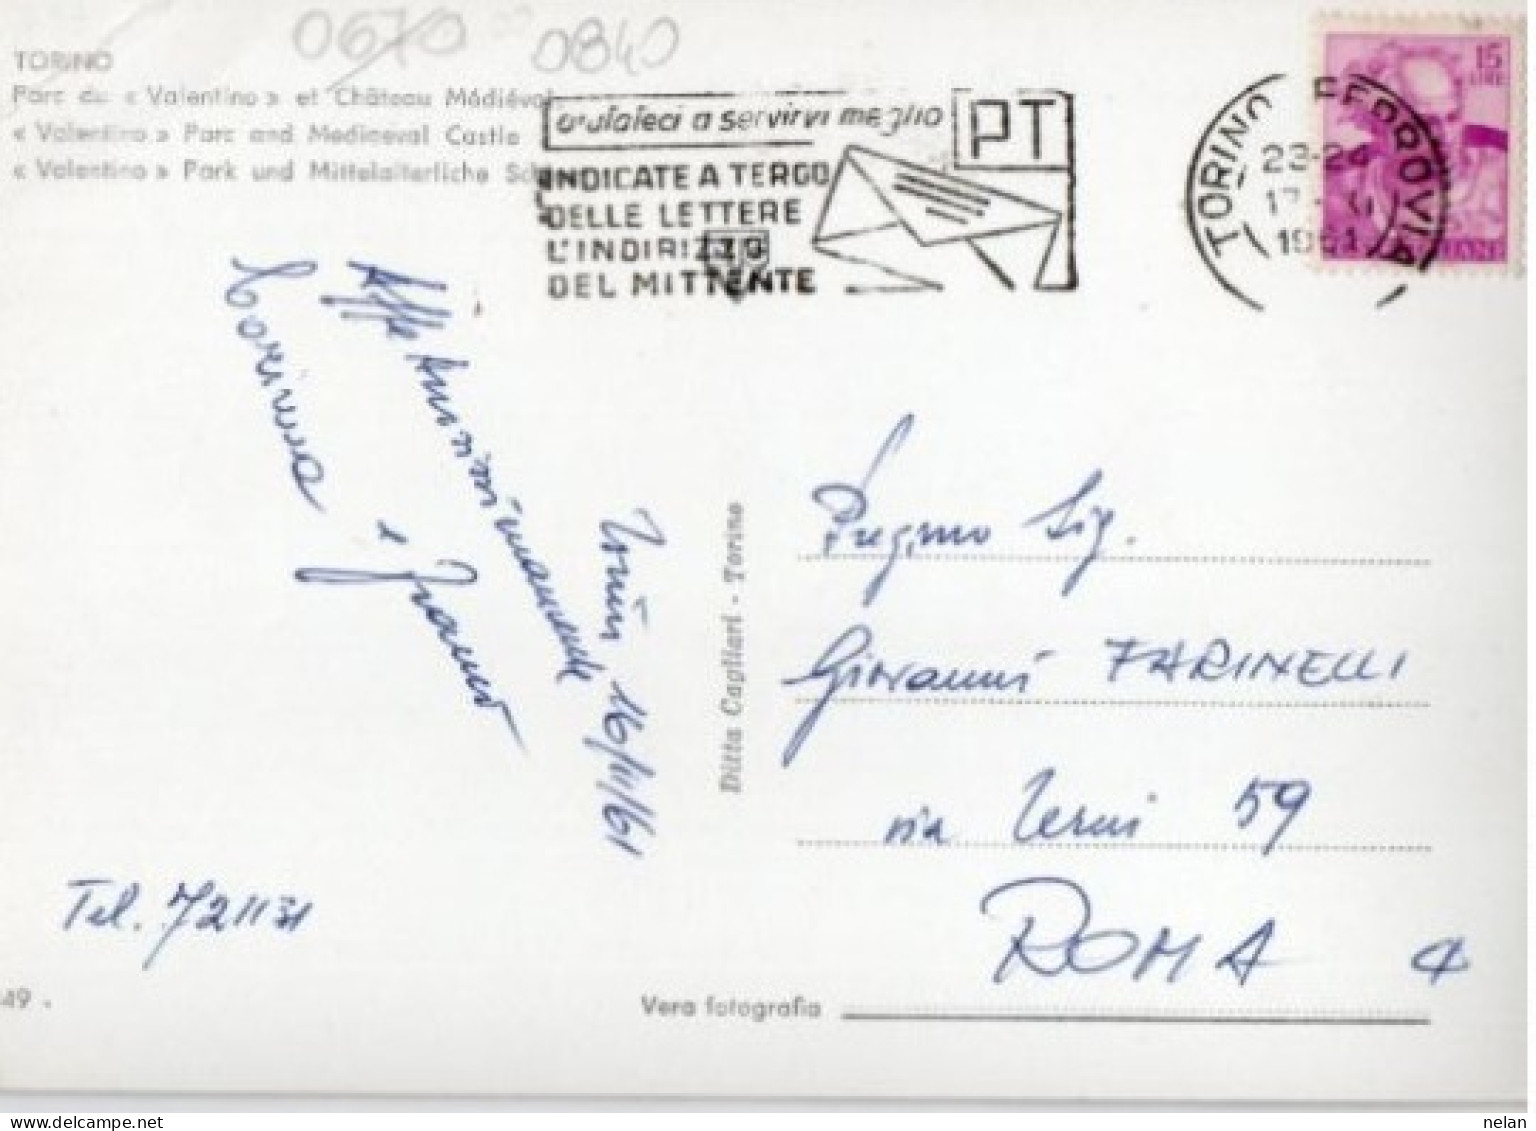 0670 0840
TORINO
Parc du « Valentino » et Château Médiéval
« Valentino » Parc and Mediaeval Castle
« Valentino » Park und Mittelalterliche
aiutateci a servirvi meglio
PT
INDICATE A TERGO
DELLE LETTERE
L'INDIRIZZO
DEL MITTENTE
TORINO FERROVIA
23-24
17 XI
1961
15
LIRE
Torino, 16/11/61
Corinna e Franco
Tel. 721131
Ditta Cagliari - Torino
Preg.mo Sig.
Giovanni FARINELLI
via Terni 59
ROMA
49 .
Vera fotografia
nelan
delcampe.net